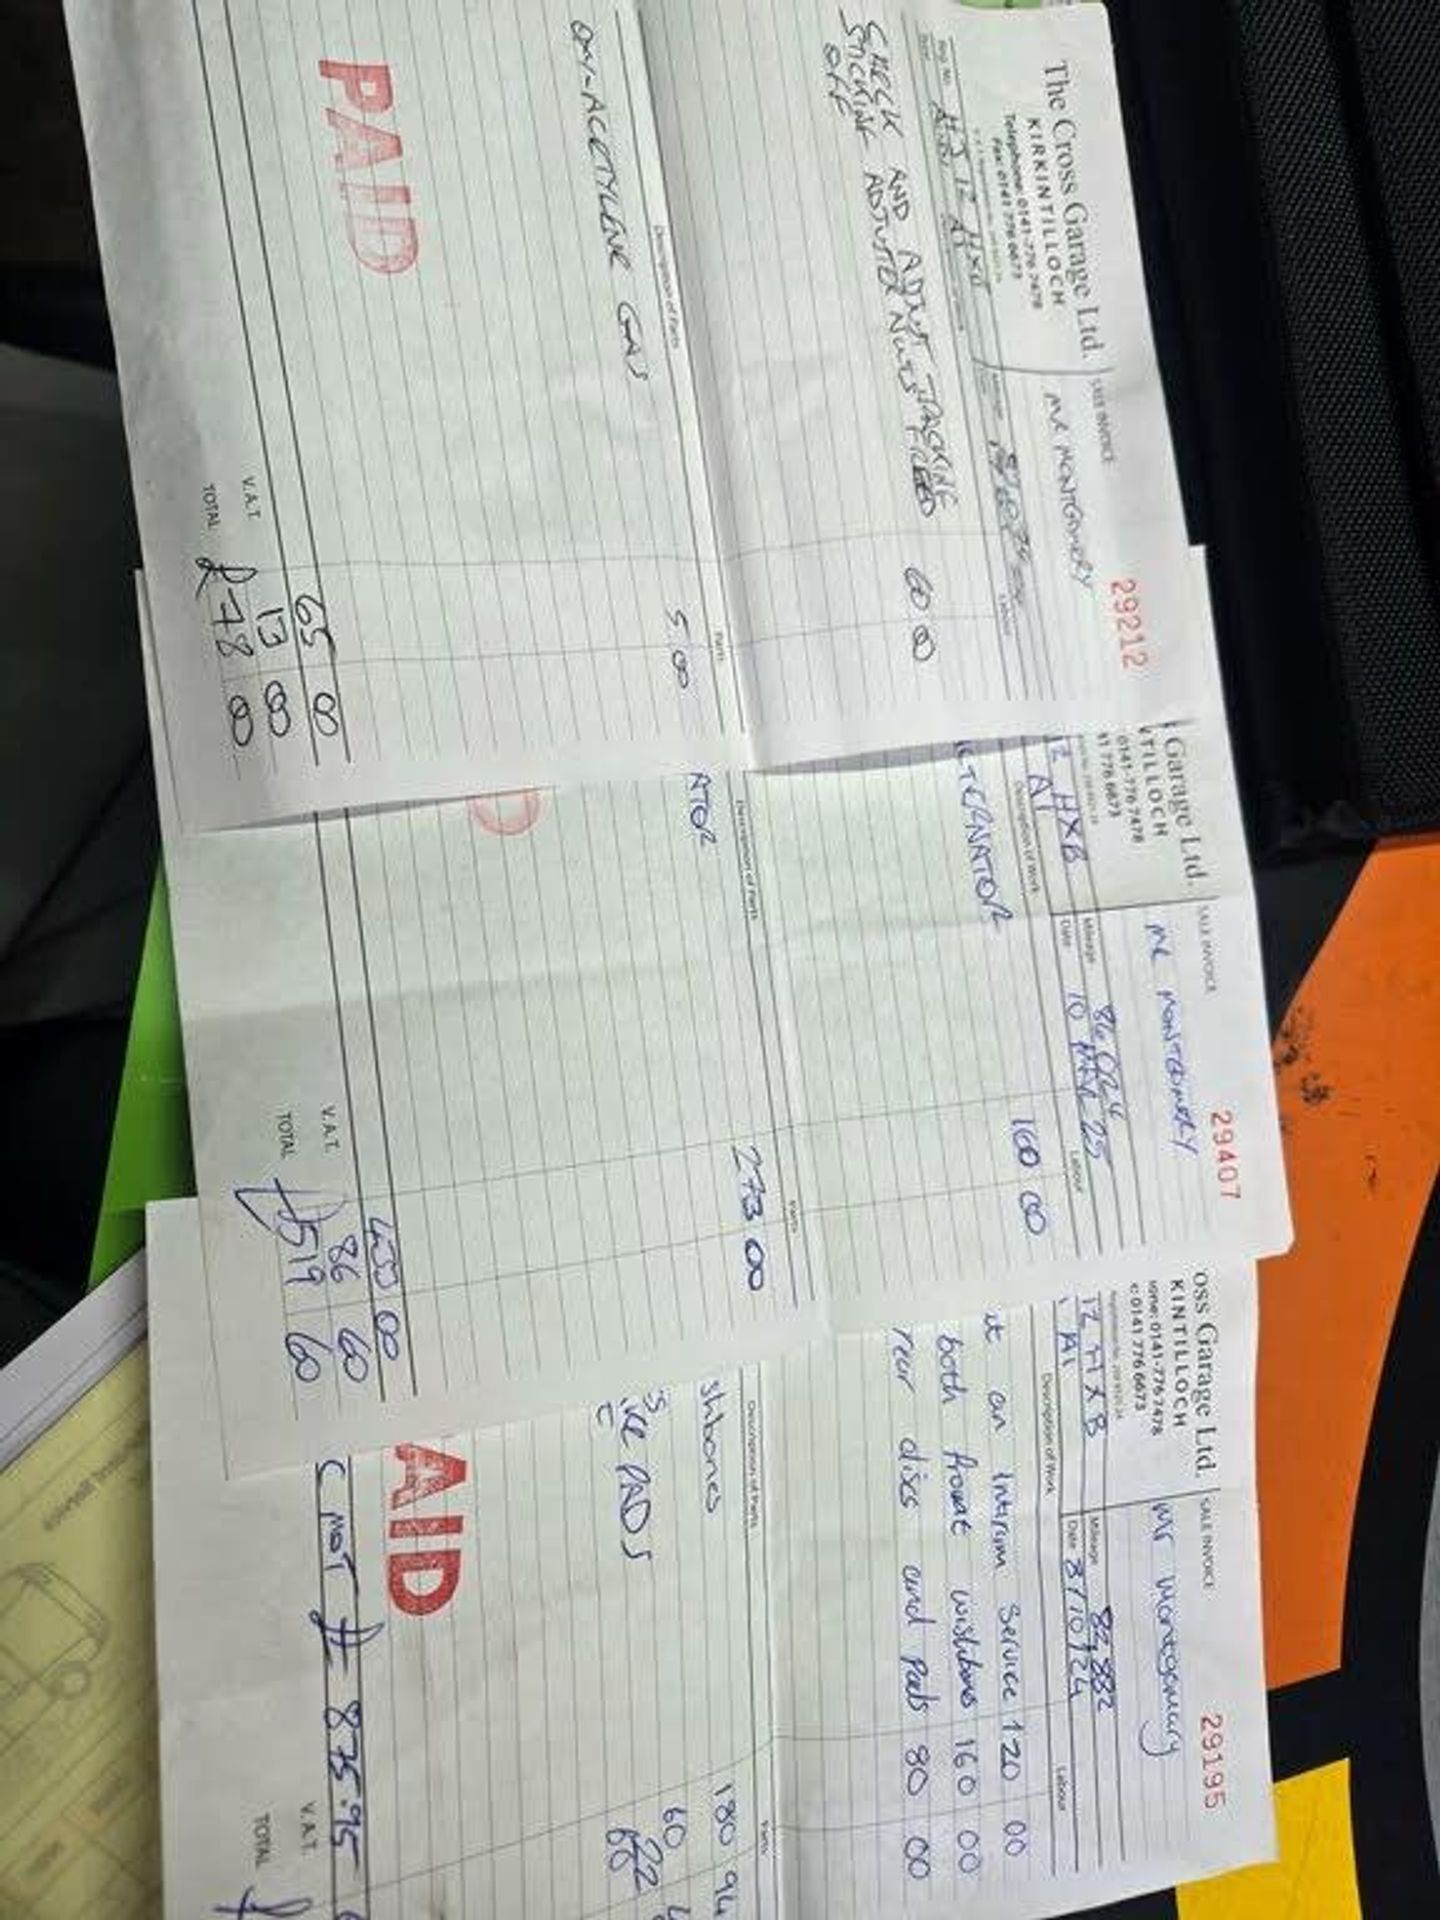 The Cross Garage Ltd.
KIRKINTILLOCH
Telephone: 0141-776 7478
Fax: 0141 776 6673
SALE INVOICE
29212
MR MONTGOMERY
Reg. No.
12 HXB
Mileage
Labour
CHECK AND ADJUST TRACKING
STICKING ADJUSTER NUTS FREED
OFF
60.00
Description of Parts
Parts
OXY-ACETYLENE GAS
5.00
PAID
65 00
V.A.T. 13 00
TOTAL £78 00
Garage Ltd.
NTILLOCH
0141-776 7478
41 776 6673
SALE INVOICE
29407
MR MONTGOMERY
12 HXB
A1
Mileage 86,064
Date 10 MAR 25
Description of Work
Labour
LTERNATOR
160 00
Description of Parts
Parts
ATOR
273 00
D
433 00
V.A.T. 86 60
TOTAL £519 60
oss Garage Ltd.
KINTILLOCH
one: 0141-776 7478
: 0141 776 6673
SALE INVOICE
29195
Mr Montgomery
12 HXB
A1
Mileage 82,882
Date 3/10/24
Description of Work
Labour
ut an Interim Service 120 00
both front wishbones 160 00
rear discs and pads 80 00
Description of Parts
Parts
shbones
180 94
S
60
KE PADS
AID
MOT £ 875.95
V.A.T.
TOTAL £